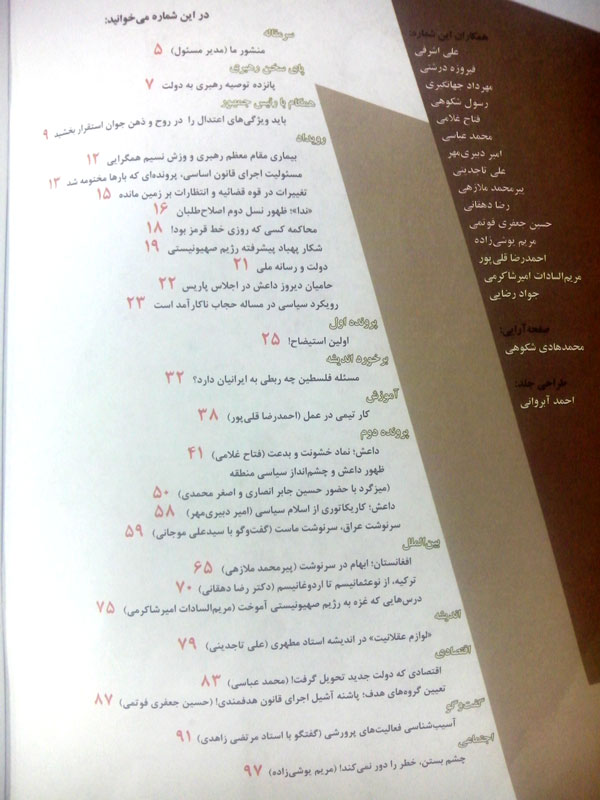 در این شماره می‌خوانید:
سرمقاله
منشور ما (مدیر مسئول) ۵
پای سخن رهبری
پانزده توصیه رهبری به دولت ۷
همگام با رئیس جمهور
باید ویژگی‌های اعتدال را در روح و ذهن جوان استقرار بخشید ۹
رویداد
بیماری مقام معظم رهبری و وزش نسیم همگرایی ۱۲
مسئولیت اجرای قانون اساسی، پرونده‌ای که بارها مختومه شد ۱۳
تغییرات در قوه قضائیه و انتظارات بر زمین مانده ۱۵
«ندا»؛ ظهور نسل دوم اصلاح‌طلبان ۱۶
محاکمه کسی که روزی خط قرمز بود! ۱۸
شکار پهپاد پیشرفته رژیم صهیونیستی ۱۹
دولت و رسانه ملی ۲۱
حامیان دیروز داعش در اجلاس پاریس ۲۲
رویکرد سیاسی در مساله حجاب ناکارآمد است ۲۳
پرونده اول
اولین استیضاح! ۲۵
برخورد اندیشه
مسئله فلسطین چه ربطی به ایرانیان دارد؟ ۳۲
آموزش
کار تیمی در عمل (احمدرضا قلی‌پور) ۳۸
پرونده دوم
داعش؛ نماد خشونت و بدعت (فتاح غلامی) ۴۱
ظهور داعش و چشم‌انداز سیاسی منطقه
(میزگرد با حضور حسین جابر انصاری و اصغر محمدی) ۵۰
داعش؛ کاریکاتوری از اسلام سیاسی (امیر دبیری‌مهر) ۵۸
سرنوشت عراق، سرنوشت ماست (گفت‌وگو با سیدعلی موجانی) ۵۹
بین‌الملل
افغانستان؛ ابهام در سرنوشت (پیرمحمد ملازهی) ۶۵
ترکیه، از نوعثمانیسم تا اردوغانیسم (دکتر رضا دهقانی) ۷۰
درس‌هایی که غزه به رژیم صهیونیستی آموخت (مریم‌السادات امیرشاکرمی) ۷۵
اندیشه
«لوازم عقلانیت» در اندیشه استاد مطهری (علی تاجدینی) ۷۹
اقتصادی
اقتصادی که دولت جدید تحویل گرفت! (محمد عباسی) ۸۳
تعیین گروه‌های هدف؛ پاشنه آشیل اجرای قانون هدفمندی! (حسین جعفری فوتمی) ۸۷
گفت‌وگو
آسیب‌شناسی فعالیت‌های پرورشی (گفتگو با استاد مرتضی زاهدی) ۹۱
اجتماعی
چشم بستن، خطر را دور نمی‌کند! (مریم یوشی‌زاده) ۹۷
همکاران این شماره:
علی اشرفی
فیروزه درشتی
مهرداد جهانگیری
رسول شکوهی
فتاح غلامی
محمد عباسی
امیر دبیری‌مهر
علی تاجدینی
پیرمحمد ملازهی
رضا دهقانی
حسین جعفری فوتمی
مریم یوشی‌زاده
احمدرضا قلی‌پور
مریم‌السادات امیرشاکرمی
جواد رضایی
صفحه‌آرایی:
محمدهادی شکوهی
طراحی جلد:
احمد آبروانی